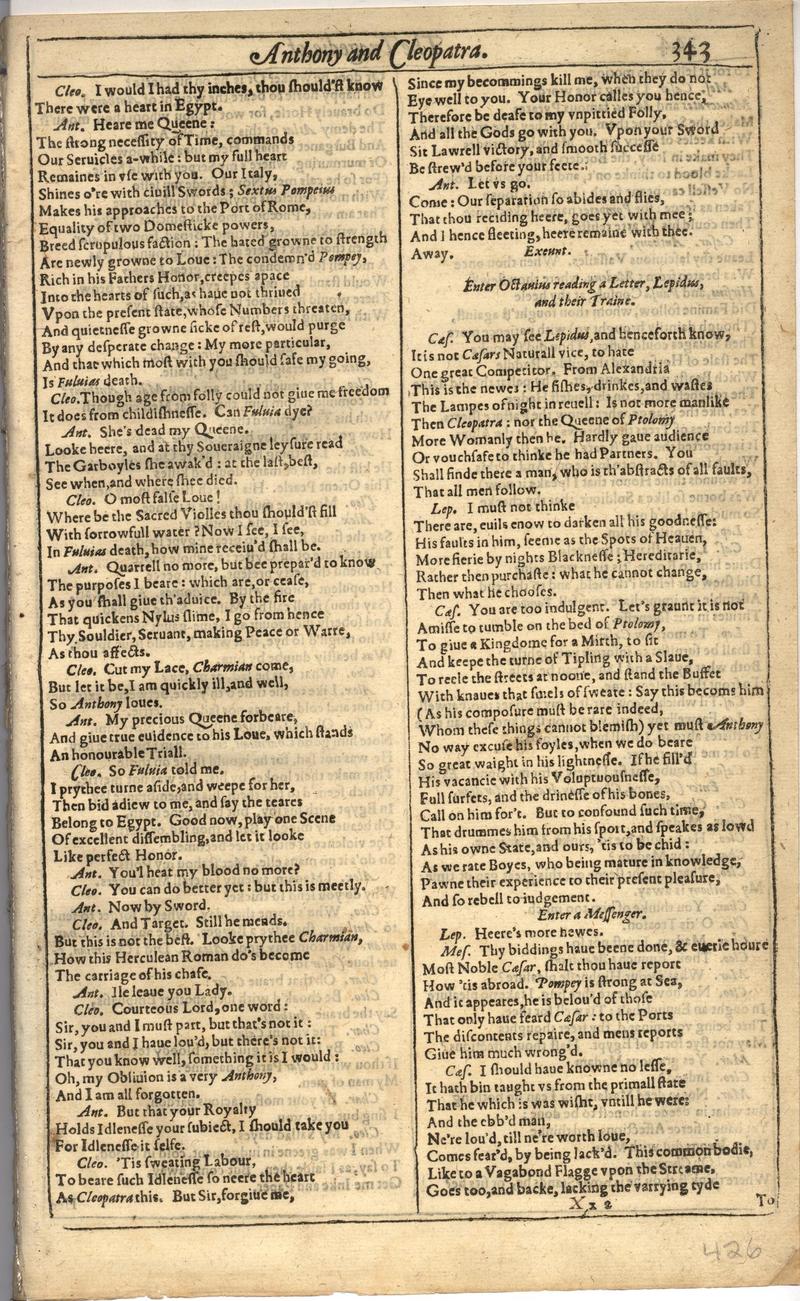 Anthony and Cleopatra. 343
Cleo. I would I had thy inches, thou ſhould'ſt know
There were a heart in Egypt.
Ant. Heare me Queene:
The ſtrong neceſſity of Time, commands
Our Seruicles a-while: but my full heart
Remaines in vſe with you. Our Italy,
Shines o're with ciuill Swords; Sextus Pompeius
Makes his approaches to the Port of Rome,
Equality of two Domeſticke powers,
Breed ſcrupulous faction: The hated growne to ſtrength
Are newly growne to Loue: The condemn'd Pompey,
Rich in his Fathers Honor, creepes apace
Into the hearts of ſuch, as haue not thriued
Vpon the preſent ſtate, whoſe Numbers threaten,
And quietneſſe growne ſicke of reſt, would purge
By any deſperate change: My more particular,
And that which moſt with you ſhould ſafe my going,
Is Fuluias death.
Cleo. Though age from folly could not giue me freedom
It does from childiſhneſſe. Can Fuluia dye?
Ant. She's dead my Queene.
Looke heere, and at thy Soueraigne leyſure read
The Garboyles ſhe awak'd: at the laſt, beſt,
See when, and where ſhee died.
Cleo. O moſt falſe Loue!
Where be the Sacred Violles thou ſhould'ſt fill
With ſorrowfull water? Now I ſee, I ſee,
In Fuluias death, how mine receiu'd ſhall be.
Ant. Quarrell no more, but bee prepar'd to know
The purpoſes I beare: which are, or ceaſe,
As you ſhall giue th'aduice. By the fire
That quickens Nylus ſlime, I go from hence
Thy Souldier, Seruant, making Peace or Warre,
As thou affects.
Cleo. Cut my Lace, Charmian come,
But let it be, I am quickly ill, and well,
So Anthony loues.
Ant. My precious Queene forbeare,
And giue true euidence to his Loue, which ſtands
An honourable Triall.
Cleo. So Fuluia told me.
I prythee turne aſide, and weepe for her,
Then bid adiew to me, and ſay the teares
Belong to Egypt. Good now, play one Scene
Of excellent diſſembling, and let it looke
Like perfect Honor.
Ant. You'l heat my blood no more?
Cleo. You can do better yet: but this is meetly.
Ant. Now by Sword.
Cleo. And Target. Still he mends.
But this is not the beſt. Looke prythee Charmian,
How this Herculean Roman do's become
The carriage of his chafe.
Ant. Ile leaue you Lady.
Cleo. Courteous Lord, one word:
Sir, you and I muſt part, but that's not it:
Sir, you and I haue lou'd, but there's not it:
That you know well, ſomething it is I would:
Oh, my Obliuion is a very Anthony,
And I am all forgotten.
Ant. But that your Royalty
Holds Idleneſſe your ſubiect, I ſhould take you
For Idleneſſe it ſelfe.
Cleo. 'Tis ſweating Labour,
To beare ſuch Idleneſſe ſo neere the heart
As Cleopatra this. But Sir, forgiue me,
Since my becommings kill me, when they do not
Eye well to you. Your Honor calles you hence,
Therefore be deafe to my vnpittied Folly,
And all the Gods go with you. Vpon your Sword
Sit Lawrell victory, and ſmooth ſucceſſe
Be ſtrew'd before your feete.
Ant. Let vs go.
Come: Our ſeparation ſo abides and flies,
That thou reciding heere, goes yet with mee;
And I hence fleeting, heere remaine with thee.
Away. Exeunt.
Enter Octauius reading a Letter, Lepidus,
and their Traine.
Cæſ. You may ſee Lepidus, and henceforth know,
It is not Cæſars Naturall vice, to hate
One great Competitor. From Alexandria
This is the newes: He fiſhes, drinkes, and waſtes
The Lampes of night in reuell: Is not more manlike
Then Cleopatra: nor the Queene of Ptolomy
More Womanly then he. Hardly gaue audience
Or vouchſafe to thinke he had Partners. You
Shall finde there a man, who is th'abſtracts of all faults,
That all men follow.
Lep. I muſt not thinke
There are, euils enow to darken all his goodneſſe:
His faults in him, ſeeme as the Spots of Heauen,
More fierie by nights Blackneſſe; Hereditarie,
Rather then purchaſte: what he cannot change,
Then what he chooſes.
Cæſ. You are too indulgent. Let's graunt it is not
Amiſſe to tumble on the bed of Ptolomy,
To giue a Kingdome for a Mirth, to ſit
And keepe the turne of Tipling with a Slaue,
To reele the ſtreets at noone, and ſtand the Buffet
With knaues that ſmels of ſweate: Say this becoms him
(As his compoſure muſt be rare indeed,
Whom theſe things cannot blemiſh) yet muſt Anthony
No way excuſe his foyles, when we do beare
So great waight in his lightneſſe. If he fill'd
His vacancie with his Voluptuouſneſſe,
Full ſurfets, and the drineſſe of his bones,
Call on him for't. But to confound ſuch time,
That drummes him from his ſport, and ſpeakes as lowd
As his owne State, and ours, 'tis to be chid:
As we rate Boyes, who being mature in knowledge,
Pawne their experience to their preſent pleaſure,
And ſo rebell to iudgement.
Enter a Meſſenger.
Lep. Heere's more newes.
Meſ. Thy biddings haue beene done, & euerie houre
Moſt Noble Cæſar, ſhalt thou haue report
How 'tis abroad. Pompey is ſtrong at Sea,
And it appeares, he is belou'd of thoſe
That only haue feard Cæſar: to the Ports
The diſcontents repaire, and mens reports
Giue him much wrong'd.
Cæſ. I ſhould haue knowne no leſſe,
It hath bin taught vs from the primall ſtate
That he which is was wiſht, vntill he were:
And the ebb'd man,
Ne're lou'd, till ne're worth loue,
Comes fear'd, by being lack'd. This common bodie,
Like to a Vagabond Flagge vpon the Streame,
Goes too, and backe, lacking the varrying tyde
X x 2 To
426